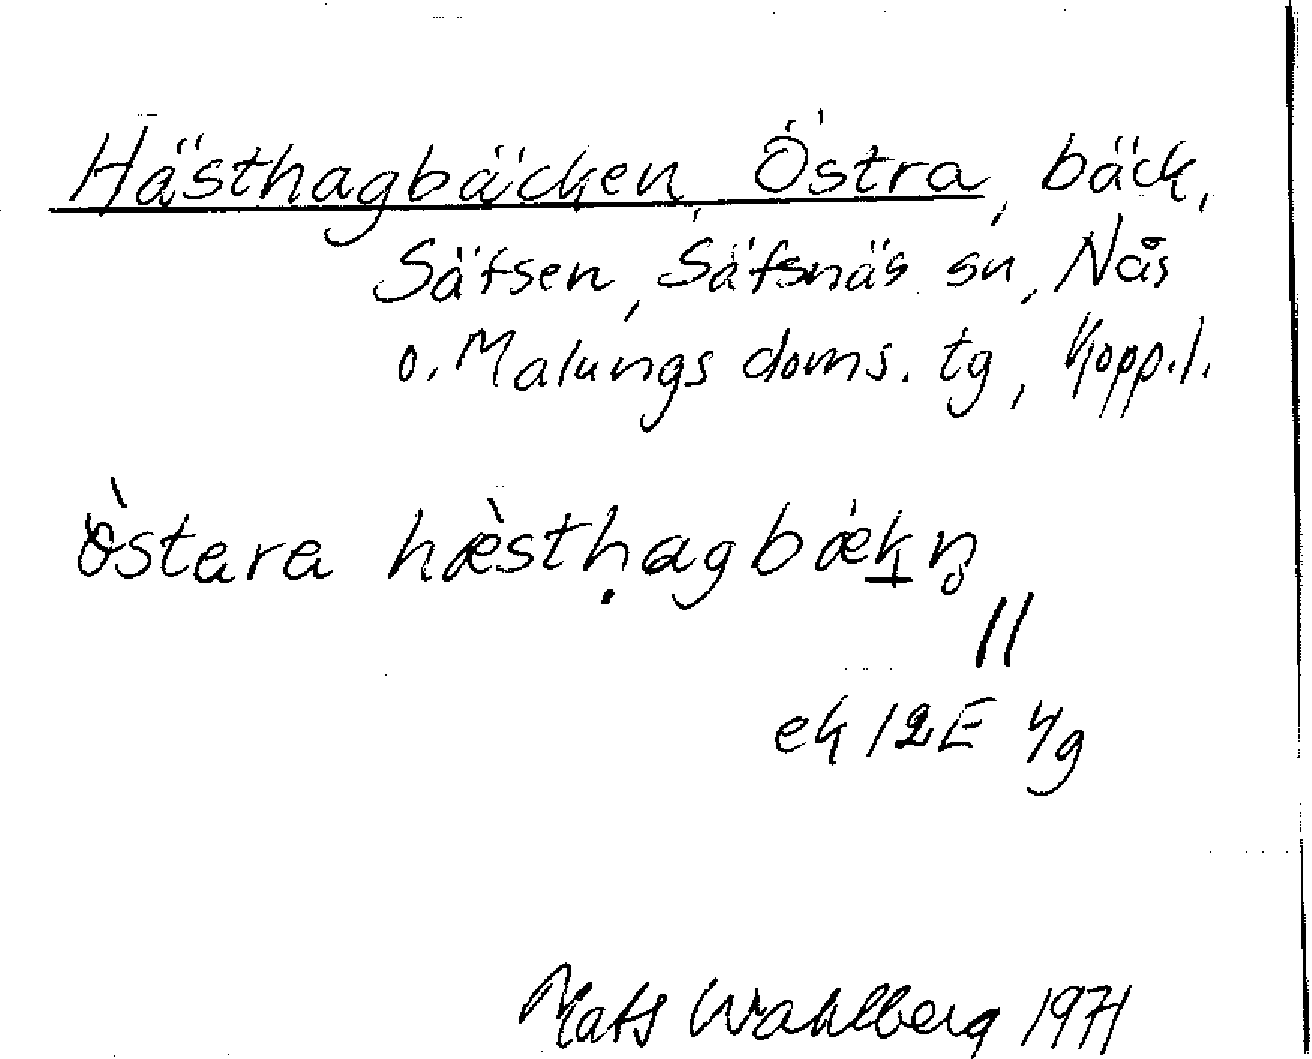 Hästhagbäcken, Östra, bäck,
Säfsen, Säfsnäs sn, Nås
o. Malungs doms. tg, Kopp.l.
östara hæ̀stḥagbækn̥
//
ek 12E 4g
Mats Wahlberg 1971